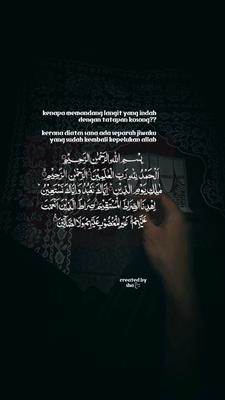 kenapa memandang langit yang indah
dengan tatapan kosong??
kerana diatas sana ada separuh jiwaku
yang sudah kembali kepelukan allah
بِسْمِ اللهِ الرَّحْمٰنِ الرَّحِيْمِ
اَلْحَمْدُ لِلّٰهِ رَبِّ الْعٰلَمِيْنَ الرَّحْمٰنِ الرَّحِيْمِ
مٰلِكِ يَوْمِ الدِّيْنِ اِيَّاكَ نَعْبُدُ وَاِيَّاكَ نَسْتَعِيْنُ
اِهْدِنَا الصِّرَاطَ الْمُسْتَقِيْمَ صِرَاطَ الَّذِيْنَ اَنْعَمْتَ
عَلَيْهِمْ غَيْرِ الْمَغْضُوْبِ عَلَيْهِمْ وَلَا الضَّآلِّيْنَ
created by